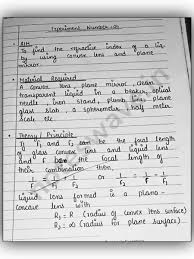 Experiment Number - 08
Aim
To find the refractive index of a liq.
by using convex lens and plane
mirror.
Material Required
A convex lens, plane mirror, clean
transparent liquid in a beaker, optical
needle, iron stand, plumb line, plane
glass slab, a spherometer, half meter
scale etc.
Theory / Principle
If F1 and F2 can be the focal length
of glass convex lens and liquid lens
and F be the focal length of
their combination then,
1/F = 1/F1 + 1/F2 or 1/F2 = 1/F - 1/F1
liquid lens formed is a plano-
concave lens with
R1 = R (radius of convex lens surface)
R2 = ∞ (radius for plane surface)